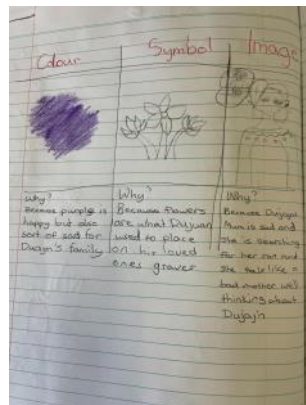 Colour
Symbol
Image
Why?
Because purple is
happy but also
sort of sad for
Dujayn's family
Why?
Because flowers
are what Dujuan
used to place
on his loved
ones graves
Why?
Because
Mum is sad and
she is searching
for her son and
she feels like a
bad mother well
thinking about
Dujajn